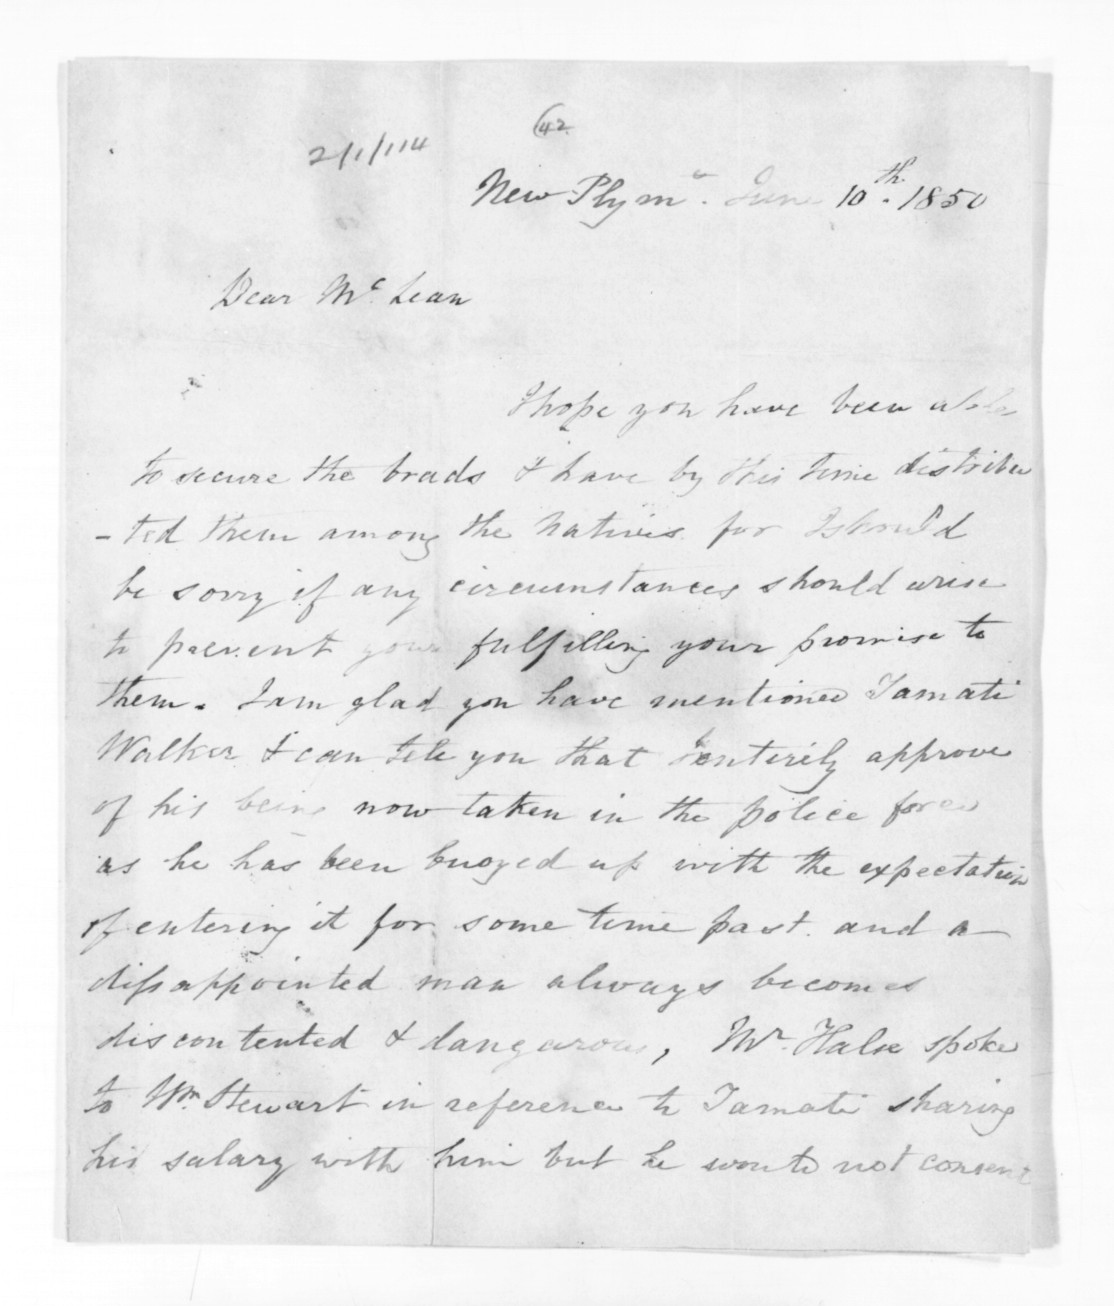 42
2/1/114
New Plym.º June 10.th 1850
Dear McLean
I hope you have been able
to secure the brads & have by this time distribu
-ted them among the Natives for I should
be sorry if any circumstances should arise
to prevent your fulfilling your promise to
them. I am glad you have mentioned Tamati
Walker & can tell you that I entirely approve
of his being now taken in the police force
as he has been buoyed up with the expectation
of entering it for some time past. and a
dissappointed man always becomes
discontented & dangerous, Mr. Halse spoke
to Wm. Stewart in reference to Tamati sharing
his salary with him but he would not consent